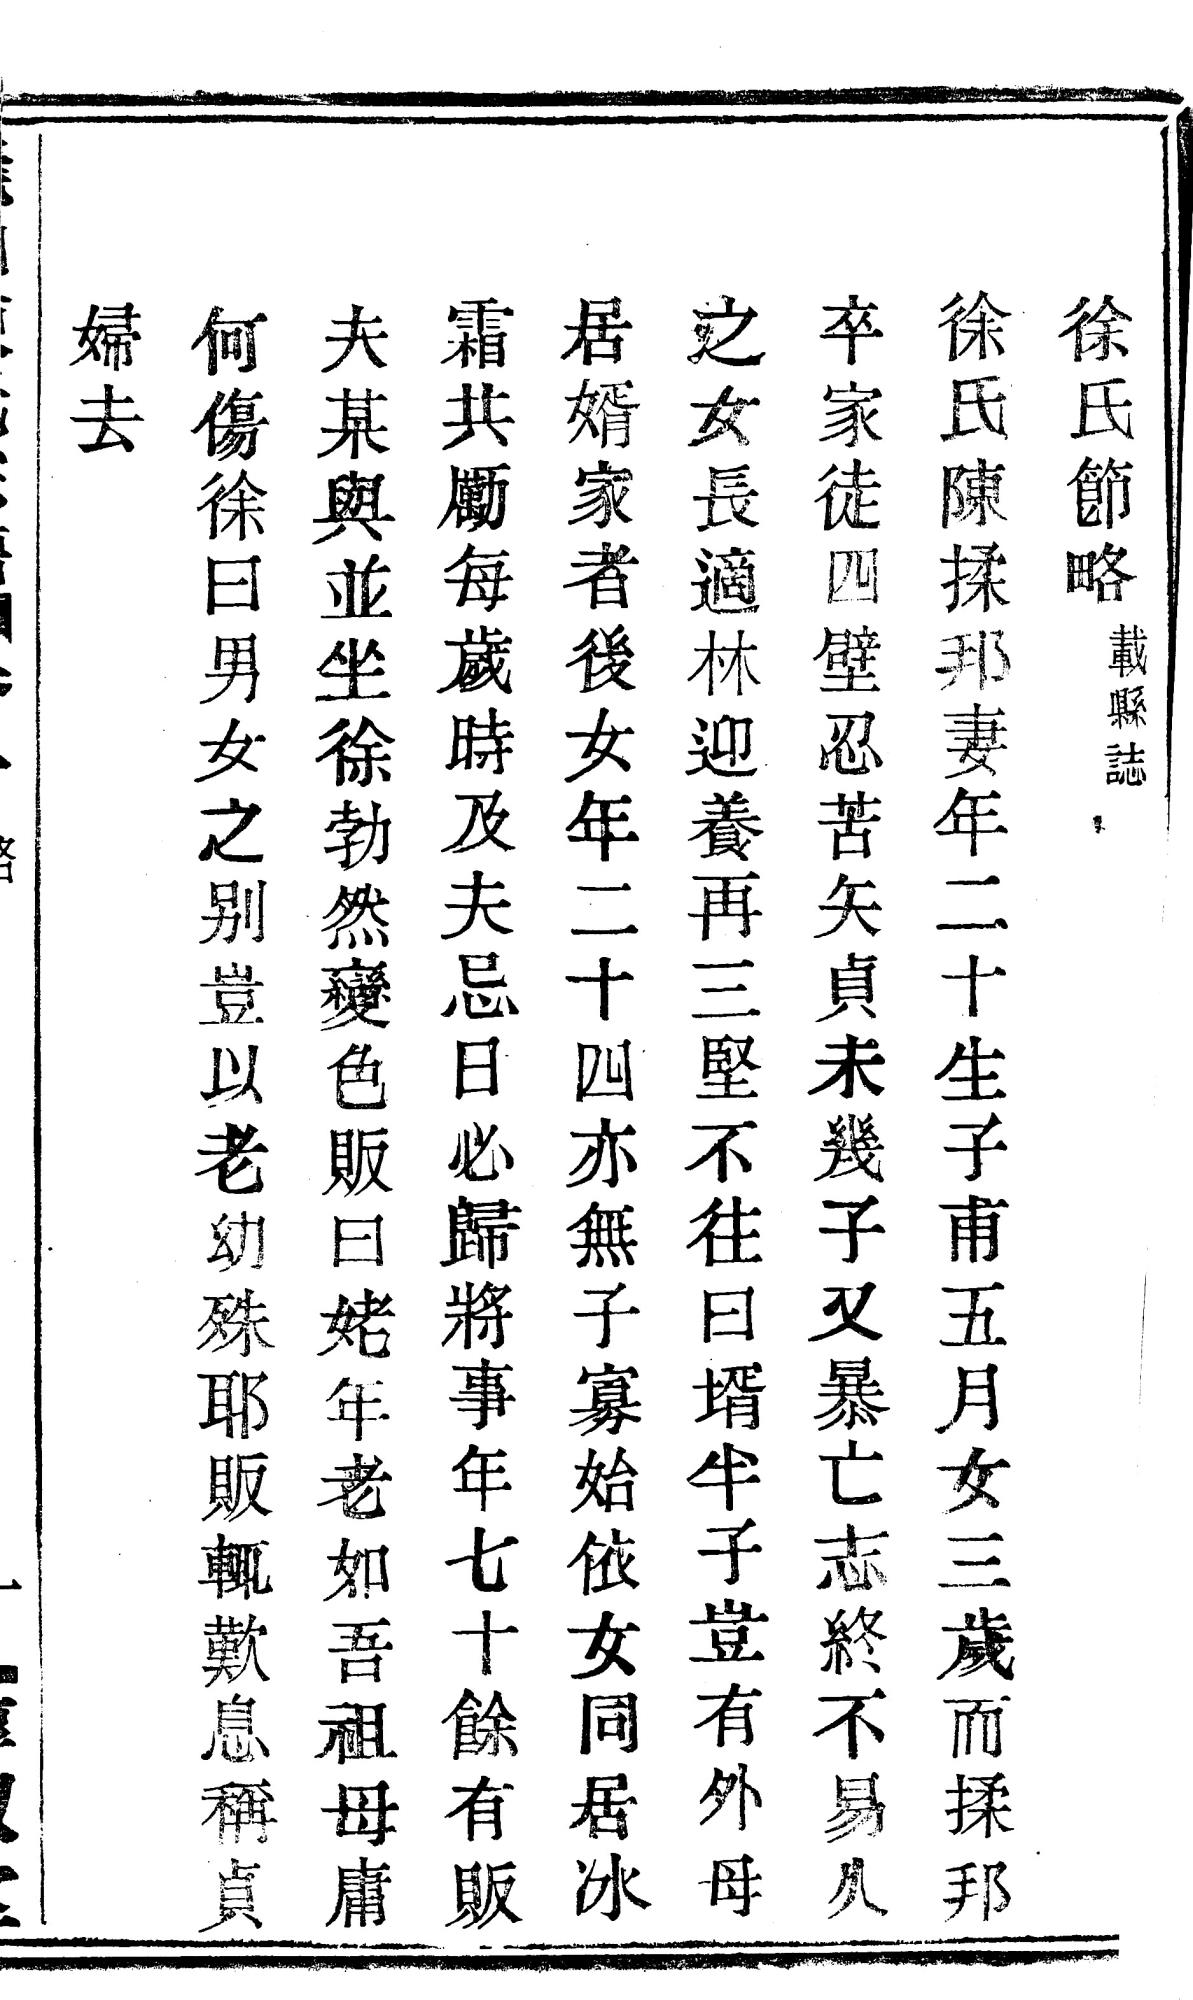 徐氏節略 載縣誌
徐氏陳揉邦妻年二十生子甫五月女三歲而揉邦
卒家徒四壁忍苦矢貞未幾子又暴亡志終不易久
之女長適林迎養再三堅不往曰壻半子豈有外母
居婿家者後女年二十四亦無子寡始依女同居冰
霜共勵每歲時及夫忌日必歸將事年七十餘有販
夫某與並坐徐勃然變色販曰姥年老如吾祖母庸
何傷徐曰男女之别豈以老幼殊耶販輒歎息稱貞
婦去